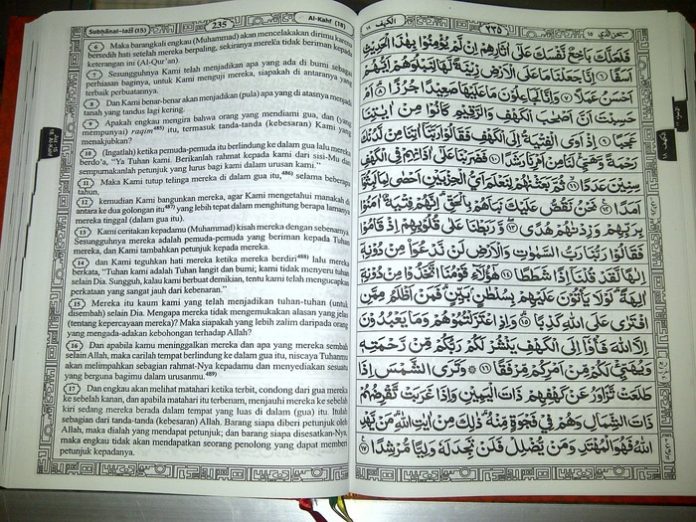 Subhânal-ladî (15)
235
Al-Kahf (18)
6 Maka barangkali engkau (Muhammad) akan mencelakakan dirimu karena
bersedih hati setelah mereka berpaling, sekiranya mereka tidak beriman kepada
keterangan ini (Al-Qur'an).
7 Sesungguhnya Kami telah menjadikan apa yang ada di bumi sebagai
perhiasan baginya, untuk Kami menguji mereka, siapakah di antaranya yang
terbaik perbuatannya.
8 Dan Kami benar-benar akan menjadikan (pula) apa yang di atasnya menjadi
tanah yang tandus lagi kering.
9 Apakah engkau mengira bahwa orang yang mendiami gua, dan (yang
mempunyai) raqim485) itu, termasuk tanda-tanda (kebesaran) Kami yang
menakjubkan?
10 (Ingatlah) ketika pemuda-pemuda itu berlindung ke dalam gua lalu mereka
berdo'a, "Ya Tuhan kami. Berikanlah rahmat kepada kami dari sisi-Mu dan
sempurnakanlah petunjuk yang lurus bagi kami dalam urusan kami."
11 Maka Kami tutup telinga mereka di dalam gua itu,486) selama beberapa
tahun.
12 kemudian Kami bangunkan mereka, agar Kami mengetahui manakah di
antara ke dua golongan itu487) yang lebih tepat dalam menghitung berapa lamanya
mereka tinggal (dalam gua itu).
13 Kami ceritakan kepadamu (Muhammad) kisah mereka dengan sebenarnya.
Sesungguhnya mereka adalah pemuda-pemuda yang beriman kepada Tuhan
mereka, dan Kami tambahkan petunjuk kepada mereka.
14 dan Kami teguhkan hati mereka ketika mereka berdiri488) lalu mereka
berkata, "Tuhan kami adalah Tuhan langit dan bumi; kami tidak menyeru tuhan
selain Dia. Sungguh, kalau kami berbuat demikian, tentu kami telah mengucapkan
perkataan yang sangat jauh dari kebenaran."
15 Mereka itu kaum kami yang telah menjadikan tuhan-tuhan (untuk
disembah) selain Dia. Mengapa mereka tidak mengemukakan alasan yang jelas
(tentang kepercayaan mereka)? Maka siapakah yang lebih zalim daripada orang
yang mengada-adakan kebohongan terhadap Allah?
16 Dan apabila kamu meninggalkan mereka dan apa yang mereka sembah
selain Allah, maka carilah tempat berlindung ke dalam gua itu, niscaya Tuhanmu
akan melimpahkan sebagian rahmat-Nya kepadamu dan menyediakan sesuatu
yang berguna bagimu dalam urusanmu.489)
17 Dan engkau akan melihat matahari ketika terbit, condong dari gua mereka
ke sebelah kanan, dan apabila matahari itu terbenam, menjauhi mereka ke sebelah
kiri sedang mereka berada dalam tempat yang luas di dalam (gua) itu. Itulah
sebagian dari tanda-tanda (kebesaran) Allah. Barang siapa diberi petunjuk oleh
Allah, maka dialah yang mendapat petunjuk; dan barang siapa disesatkan-Nya,
maka engkau tidak akan mendapatkan seorang penolong yang dapat memberi
petunjuk kepadanya.
الكهف ١٨
٢٣٥
سبحن الذي ١٥
فَلَعَلَّكَ بَاخِعٌ نَّفْسَكَ عَلٰٓى اٰثَارِهِمْ اِنْ لَّمْ يُؤْمِنُوْا بِهٰذَا الْحَدِيْثِ
اَسَفًا ﴿٦﴾ اِنَّا جَعَلْنَا مَا عَلَى الْاَرْضِ زِيْنَةً لَّهَا لِنَبْلُوَهُمْ اَيُّهُمْ
اَحْسَنُ عَمَلًا ﴿٧﴾ وَاِنَّا لَجٰعِلُوْنَ مَا عَلَيْهَا صَعِيْدًا جُرُزًا ﴿٨﴾ اَمْ
حَسِبْتَ اَنَّ اَصْحٰبَ الْكَهْفِ وَالرَّقِيْمِ كَانُوْا مِنْ اٰيٰتِنَا
عَجَبًا ﴿٩﴾ اِذْ اَوَى الْفِتْيَةُ اِلَى الْكَهْفِ فَقَالُوْا رَبَّنَآ اٰتِنَا مِنْ لَّدُنْكَ
رَحْمَةً وَّهَيِّئْ لَنَا مِنْ اَمْرِنَا رَشَدًا ﴿١٠﴾ فَضَرَبْنَا عَلٰٓى اٰذَانِهِمْ فِى الْكَهْفِ
سِنِيْنَ عَدَدًا ﴿١١﴾ ثُمَّ بَعَثْنٰهُمْ لِنَعْلَمَ اَيُّ الْحِزْبَيْنِ اَحْصٰى لِمَا لَبِثُوْٓا
اَمَدًا ﴿١٢﴾ نَحْنُ نَقُصُّ عَلَيْكَ نَبَاَهُمْ بِالْحَقِّ اِنَّهُمْ فِتْيَةٌ اٰمَنُوْا
بِرَبِّهِمْ وَزِدْنٰهُمْ هُدًى ﴿١٣﴾ وَّرَبَطْنَا عَلٰى قُلُوْبِهِمْ اِذْ قَامُوْا
فَقَالُوْا رَبُّنَا رَبُّ السَّمٰوٰتِ وَالْاَرْضِ لَنْ نَّدْعُوَا۟ مِنْ دُوْنِهٖٓ
اِلٰهًا لَّقَدْ قُلْنَآ اِذًا شَطَطًا ﴿١٤﴾ هٰٓؤُلَآءِ قَوْمُنَا اتَّخَذُوْا مِنْ دُوْنِهٖٓ
اٰلِهَةً لَوْلَا يَأْتُوْنَ عَلَيْهِمْ بِسُلْطٰنٍۢ بَيِّنٍ فَمَنْ اَظْلَمُ مِمَّنِ
افْتَرٰى عَلَى اللّٰهِ كَذِبًا ﴿١٥﴾ وَاِذِ اعْتَزَلْتُمُوْهُمْ وَمَا يَعْبُدُوْنَ
اِلَّا اللّٰهَ فَأْوٗٓا اِلَى الْكَهْفِ يَنْشُرْ لَكُمْ رَبُّكُمْ مِّنْ رَّحْمَتِهٖ
وَيُهَيِّئْ لَكُمْ مِّنْ اَمْرِكُمْ مِّرْفَقًا ﴿١٦﴾ وَتَرَى الشَّمْسَ اِذَا
طَلَعَتْ تَّزٰوَرُ عَنْ كَهْفِهِمْ ذَاتَ الْيَمِيْنِ وَاِذَا غَرَبَتْ تَّقْرِضُهُمْ
ذَاتَ الشِّمَالِ وَهُمْ فِيْ فَجْوَةٍ مِّنْهُ ذٰلِكَ مِنْ اٰيٰتِ اللّٰهِ مَنْ يَّهْدِ
اللّٰهُ فَهُوَ الْمُهْتَدِ وَمَنْ يُّضْلِلْ فَلَنْ تَجِدَ لَهٗ وَلِيًّا مُّرْشِدًا ﴿١٧﴾